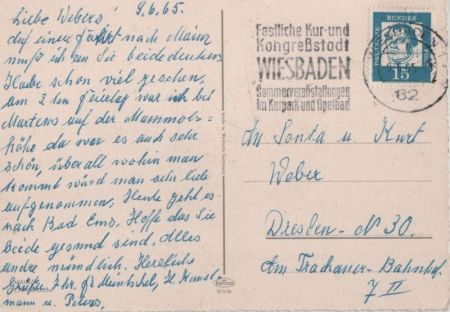 Liebe Webers! 9.6.65.
Auf einer Fahrt nach Mainz
muß ich an Sie beide denken
Habe schon viel gesehen,
am 2ten Feiertag war ich bei
Martens auf der Mammols-
höhe da war es auch sehr
schön, überall wohin man
kommt wird man sehr lieb
aufgenommen. Heute geht es
nach Bad Ems. Hoffe das Sie
Beide gesund sind. Alles
andre mündlich. Herzlichst
Grüße Ihr.
mann u. Peters.
Festliche Kur- und
Kongreßstadt
WIESBADEN
Sommerveranstaltungen
im Kurpark und Opelbad
DEUTSCHE BUNDESPOST
15
62
An Senta u Kurt
Weber
Dresden - N 30.
Am Trachauer-Bahnhof.
7 II